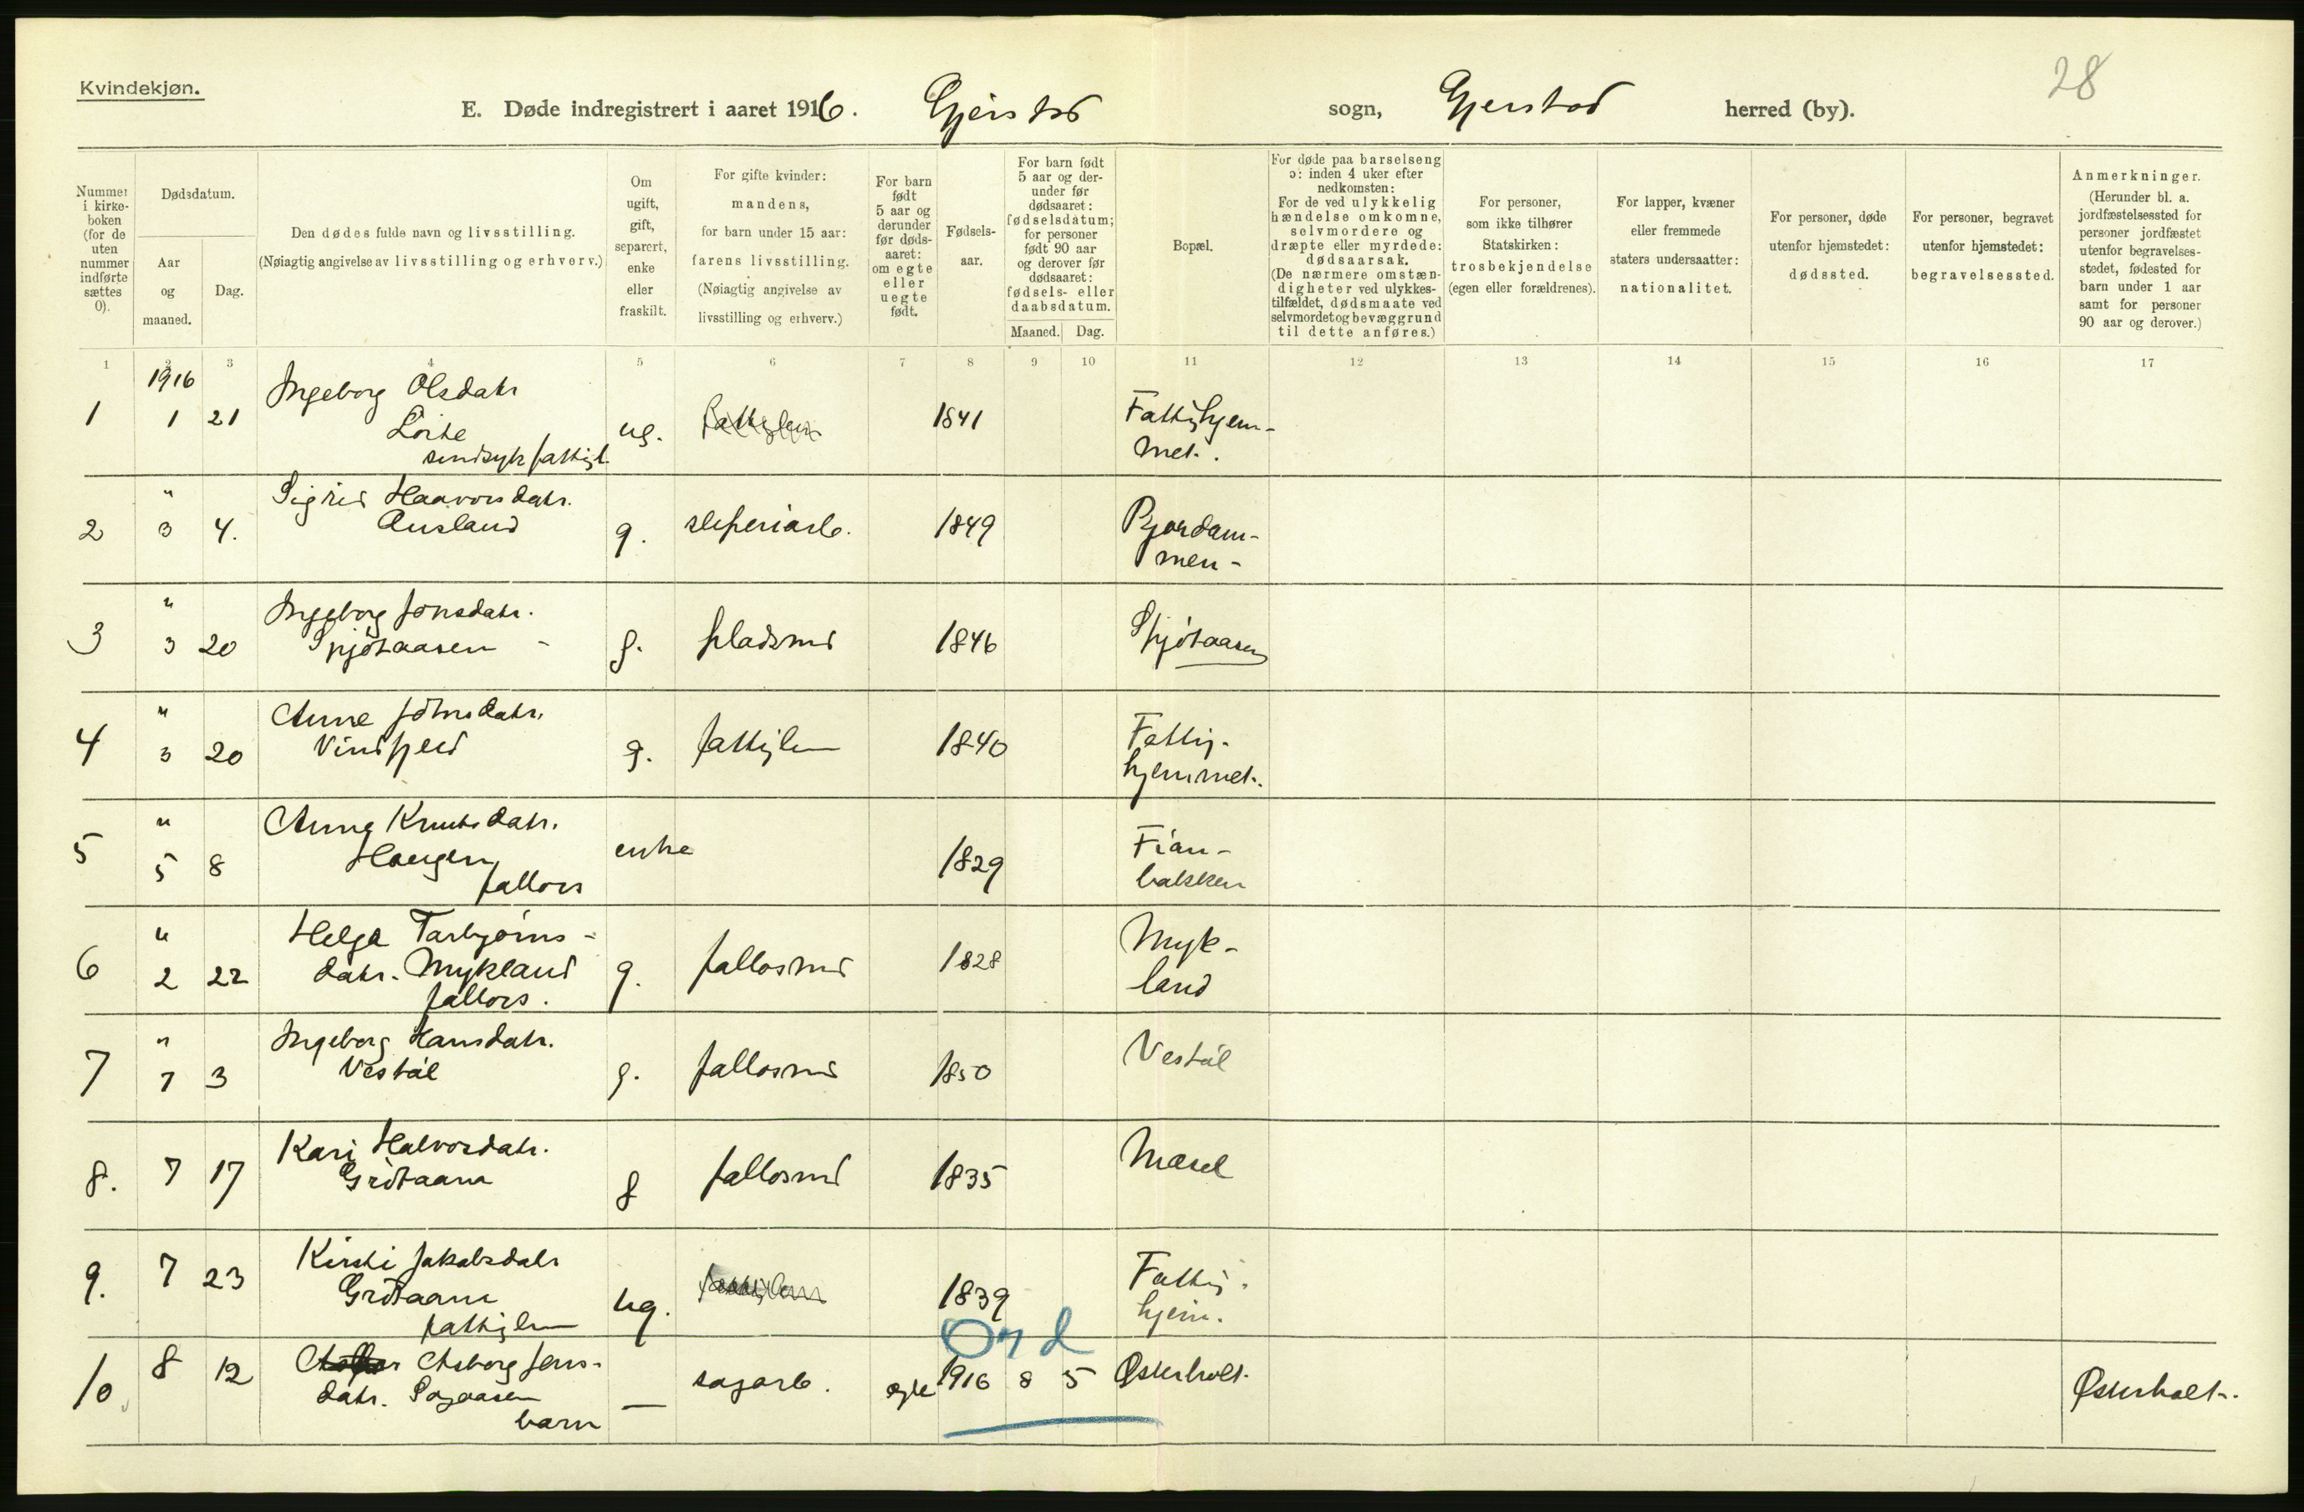 Kvindekjøn.
28
E. Døde indregistrert i aaret 1916. Gjerstad sogn, Gjerstad herred (by).
Nummer i kirke-boken (for de uten nummer indførte sættes 0).
Dødsdatum.
Aar og maaned.
Dag.
Den dødes fulde navn og livsstilling.
(Nøiagtig angivelse av livsstilling og erhverv.)
Om ugift, gift, separert, enke eller fraskilt.
For gifte kvinder: mandens, for barn under 15 aar: farens livsstilling. (Nøiagtig angivelse av livsstilling og erhverv.)
For barn født 5 aar og derunder før døds-aaret: om egte eller uegte født.
Fødsels-aar.
For barn født 5 aar og der-under før dødsaaret: fødselsdatum; for personer født 90 aar og derover før dødsaaret: fødsels- eller daabsdatum.
Maaned. Dag.
Bopæl.
For døde paa barselseng ɔ: inden 4 uker efter nedkomsten: For de ved ulykkelig hændelse omkomne, selvmordere og dræpte eller myrdede: dødsaarsak. (De nærmere omstæn-digheter ved ulykkes-tilfældet, dødsmaate ved selvmordet og bevæggrund til dette anføres.)
For personer, som ikke tilhører Statskirken: trosbekjendelse (egen eller forældrenes).
For lapper, kvæner eller fremmede staters undersaatter: nationalitet.
For personer, døde utenfor hjemstedet: dødssted.
For personer, begravet utenfor hjemstedet: begravelsessted.
Anmerkninger. (Herunder bl. a. jordfæstelsessted for personer jordfæstet utenfor begravelses-stedet, fødested for barn under 1 aar samt for personer 90 aar og derover.)
1 2 3 4 5 6 7 8 9 10 11 12 13 14 15 16 17
1916
1 1 21 Ingeborg Olsdatr ug. fattiglem 1841 Fattighjem-
Loite met.
sindsyk fattigl.
2 " 3 4. Sigrid Haavorsdatr. g. sliperiarb. 1849 Pjordam-
Ausland men -
3 " 3 20 Ingeborg Jonsdatr. g. pladsmd 1846 Spjøtaasen
Spjøtaasen -
4 " 3 20 Anne Johnsdatr. g. fattiglem 1840 Fattig-
Vindfjeld hjemmet.
5 " 5 8 Anne Knutsdatr. enke 1829 Fian-
Haugen bakken
fallors
6 " 2 22 Helga Tarbjørns- g. fallosmd 1828 Myk-
datr. Mykland land
fallors.
7 " 7 3 Ingeborg Hansdatr. g. fallosmd 1850 Vestøl
Vestøl
8. 7 17 Kari Halvorsdatr. g fallosmd 1835 Mæsel
Grøtaana
9. 7 23 Kirsti Jakobsdatr ug. fattiglem 1839 Fattig-
Grøtaana hjem.
fattiglem
Ord
10. 8 12 Asborg Jens- — sagarb. egte 1916 8 5 Østerholt. Østerholt.
datr. Sagaasen
barn